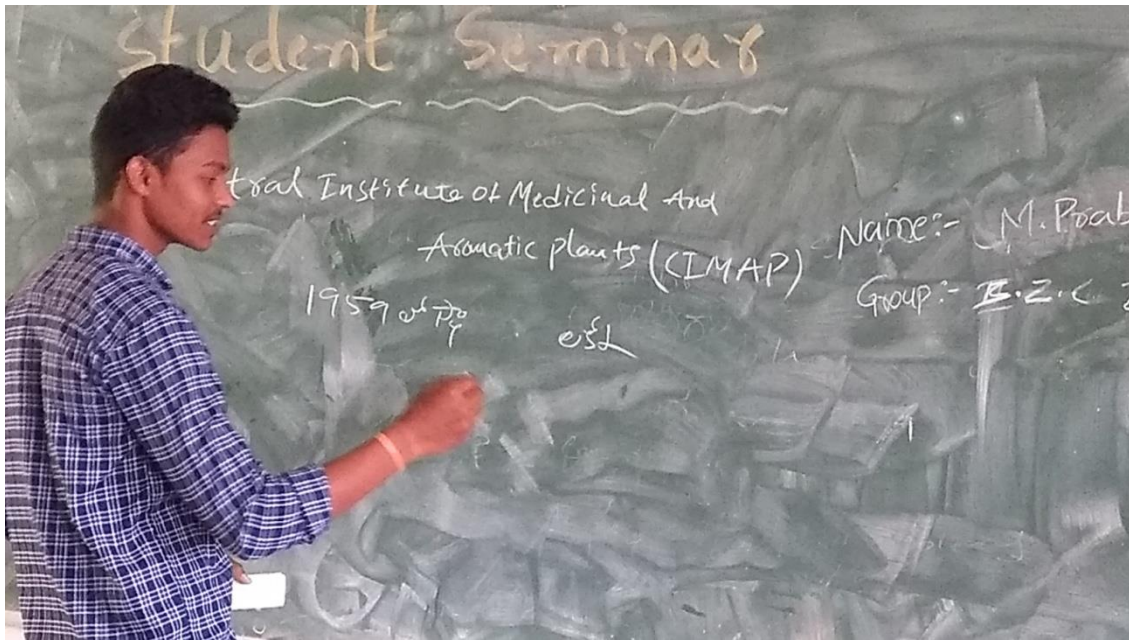 Student Seminar
tral Institute Of Medicinal And
Aromatic plants (CIMAP)
Name:- M. Prab
Group:- B.Z.C
1959